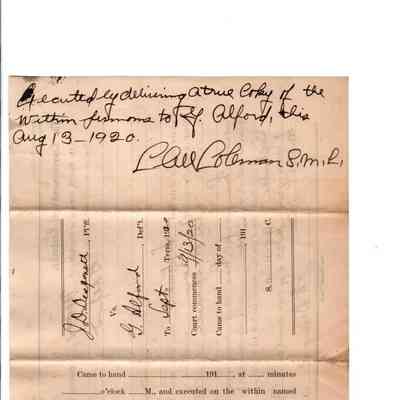 Executed by delivering a true Copy of the
within summons to G. Alford, this
Aug 13 - 1920.
Coleman S.M.C.
J.D. Plff.
Vs.
G. Alford, Deft.
To Sept. Term, 1920
Court commences 9/13/20
Came to hand day of
, 191
S. C.
Came to hand 191 , at minutes
o'clock M., and executed on the within named